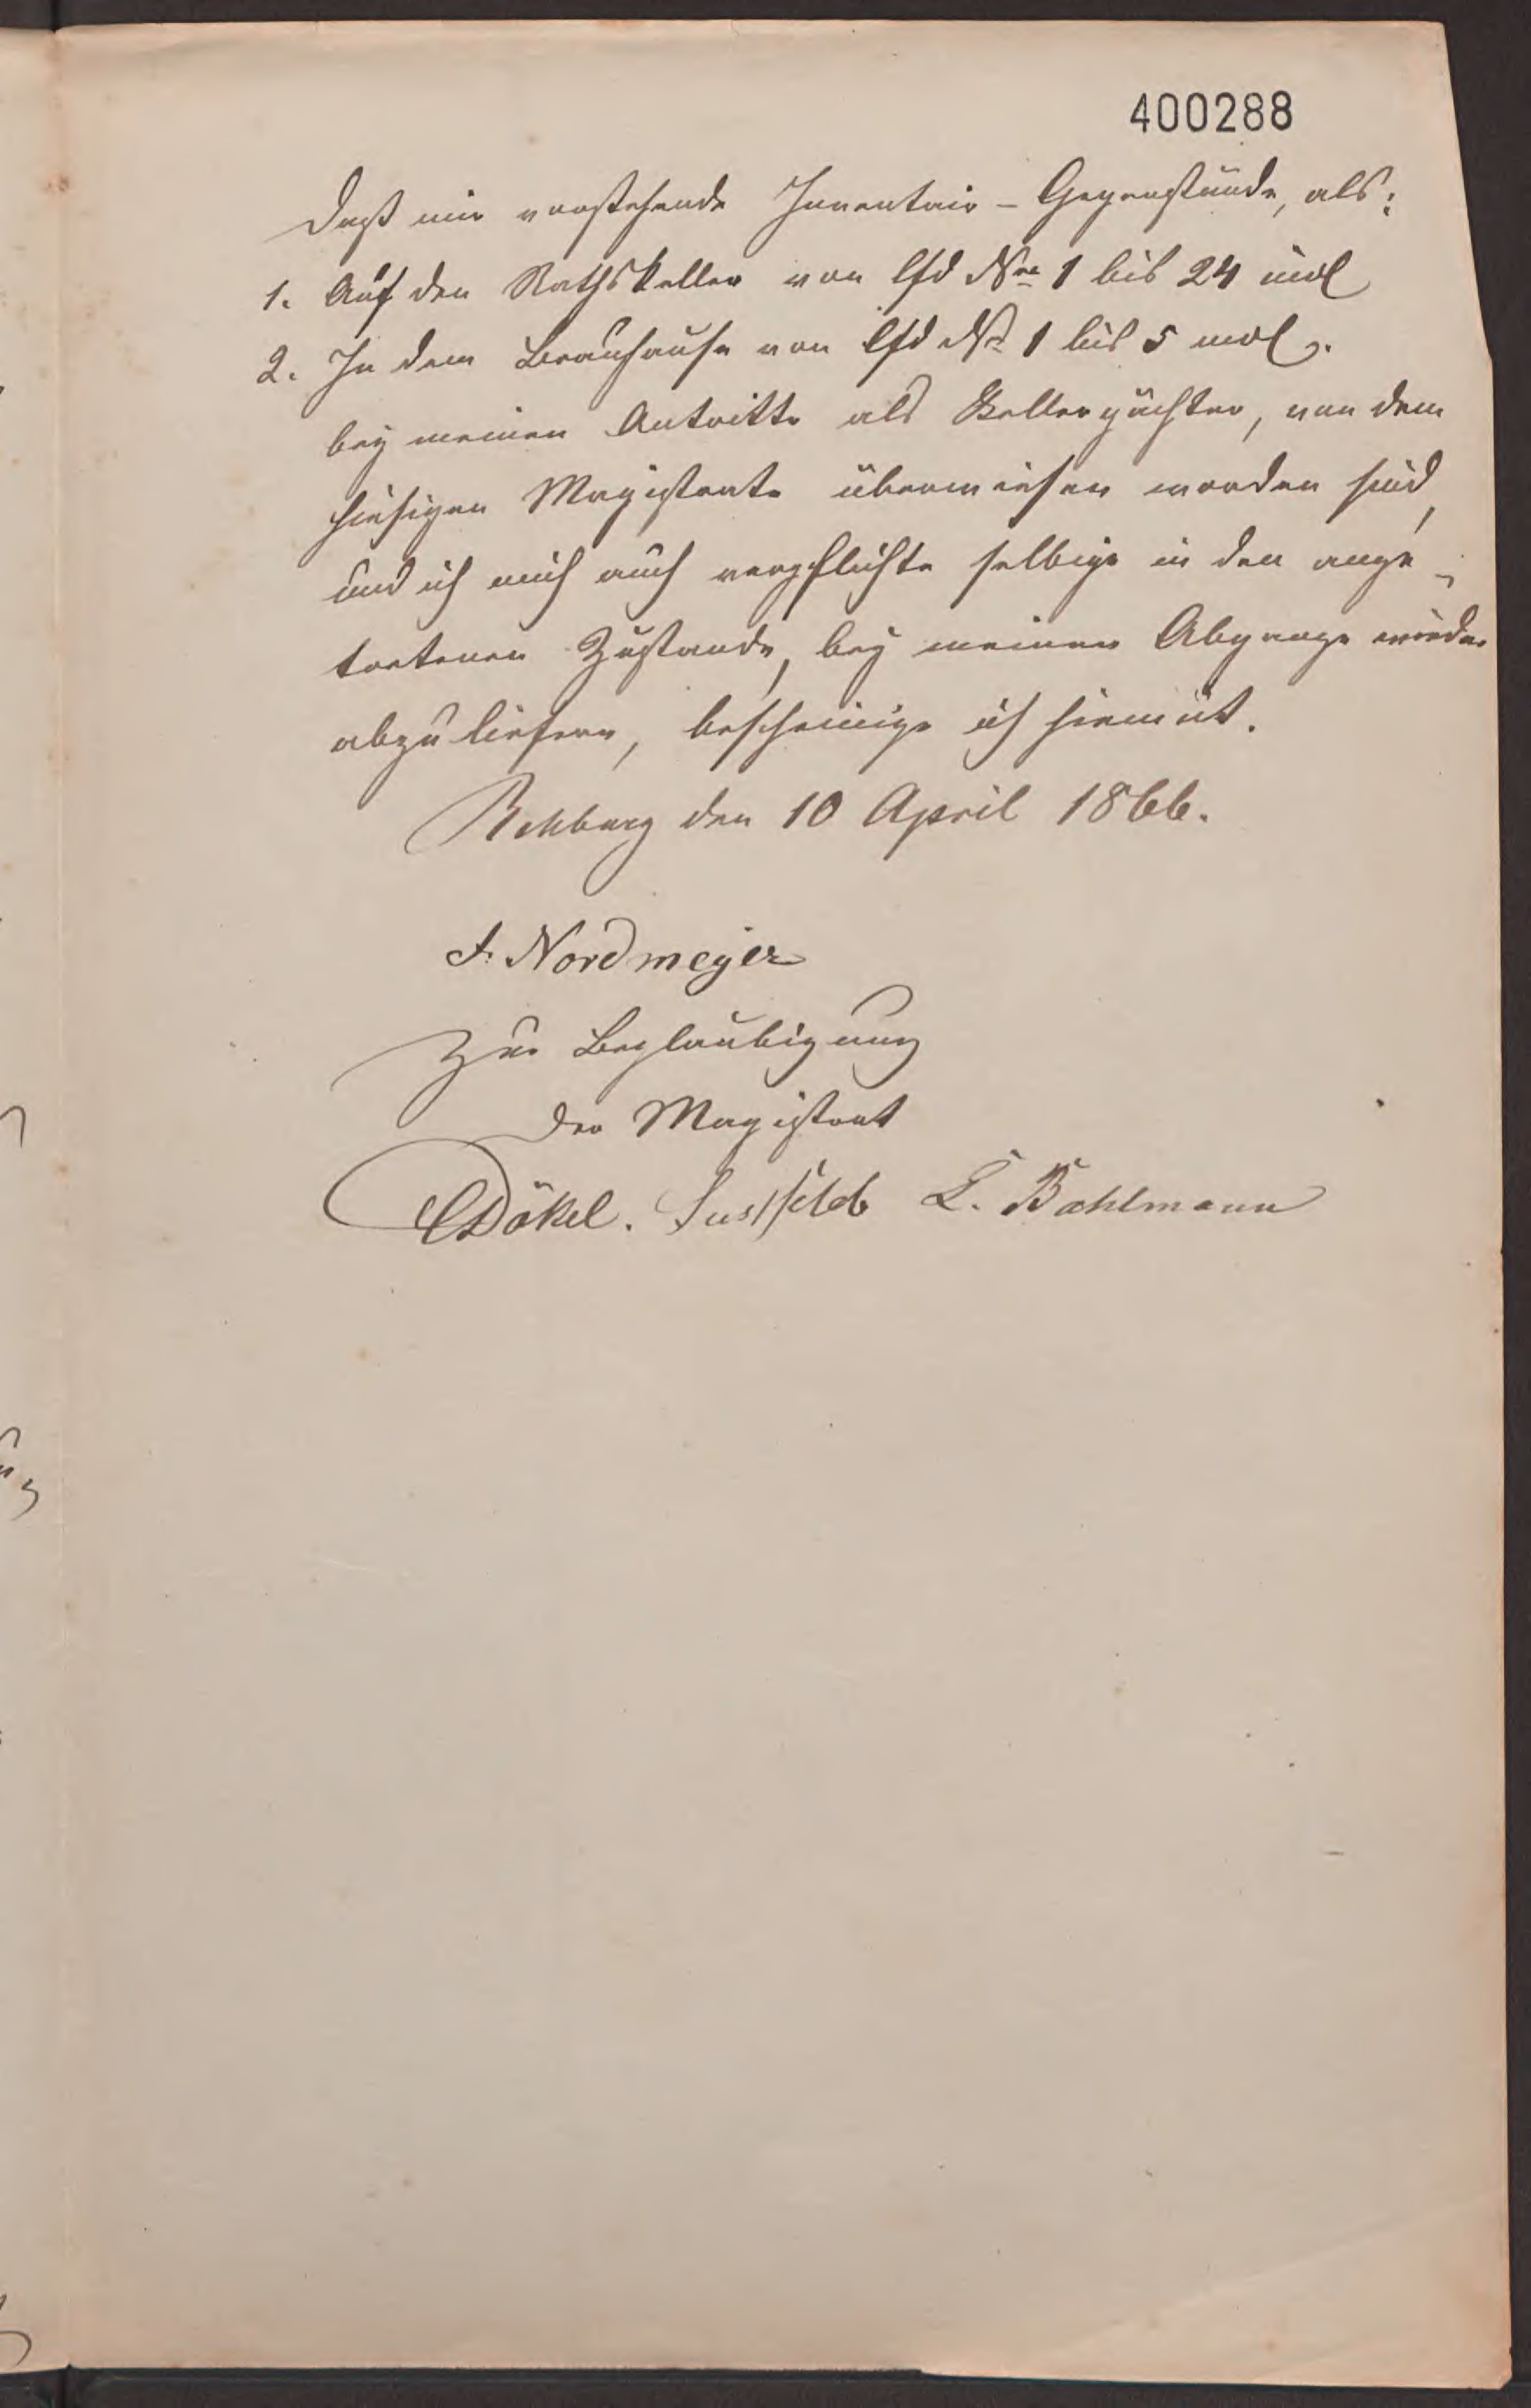 400288
Daß mir vorstehende Inventair-Gegenstände, als:
1. Auf den Rathskeller von lfd No 1 bis 24 incl
2. In dem Brauhause von lfd No 1 bis 5 incl.
bey meinen Antritte als Kellerpächter, von dem
hiesigen Magistrate überwiesen worden sind,
und ich mich auch verpflichte selbige in den ange-
tretenen Zustande, bey meinen Abgange wieder
abzuliefern, bescheinige ich hiemit.
Rehburg den 10 April 1866.
F. Nordmeyer
Zur Beglaubigung
Der Magistrat
Dökel. Lustfeld L. Bahlmann